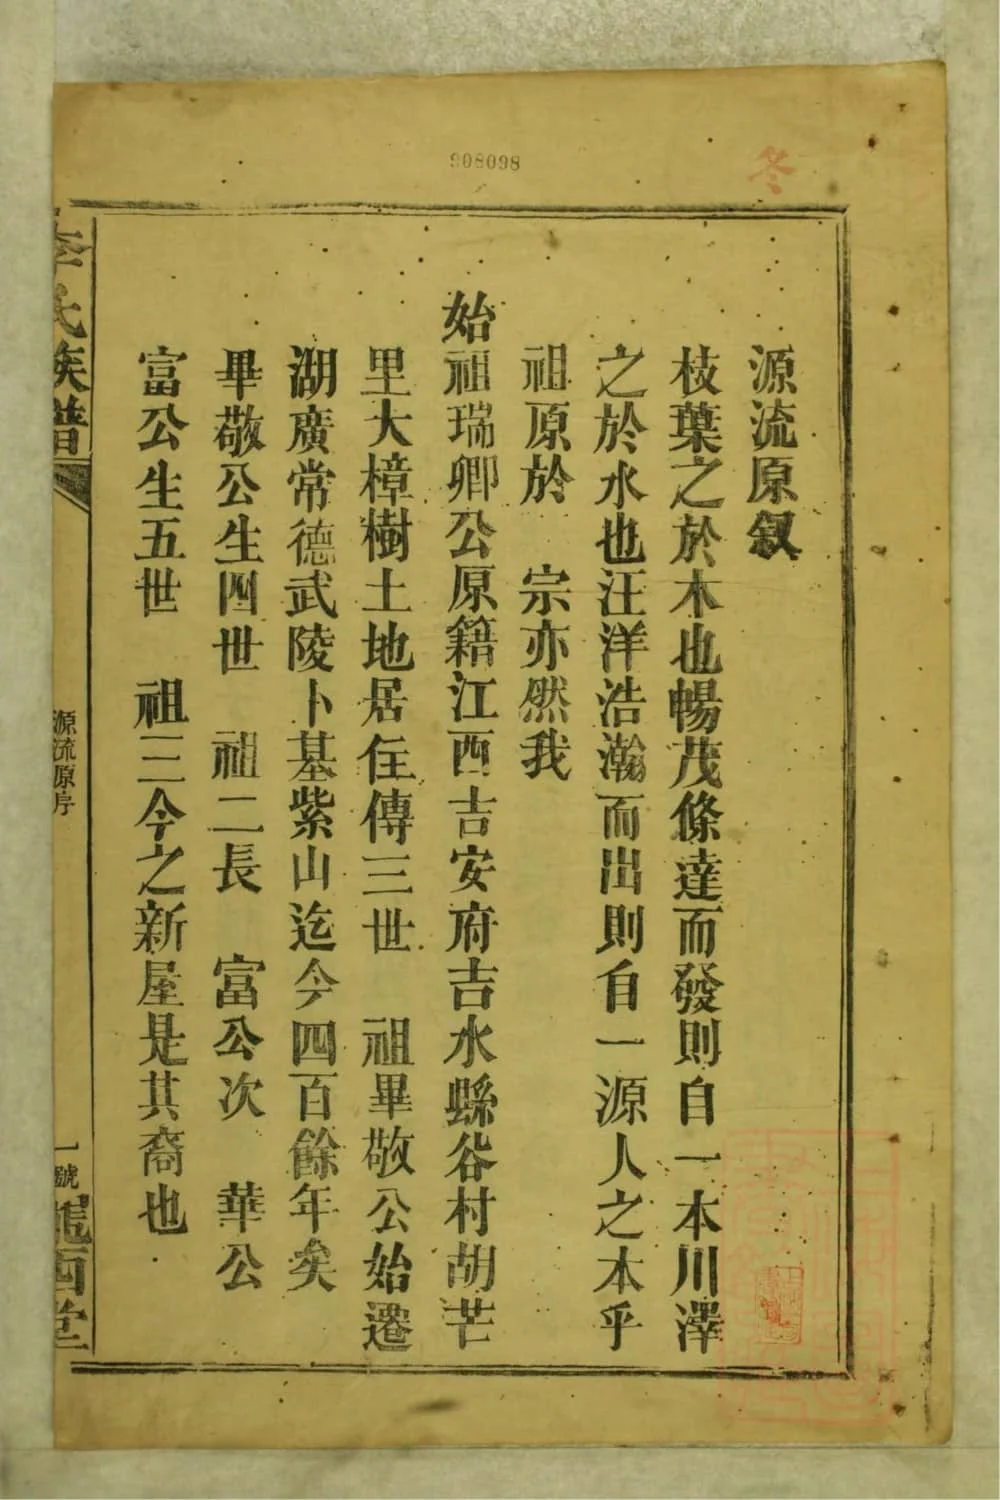 908098
冬
源流原叙
枝葉之於木也暢茂條達而發則自一本川澤
之於水也汪洋浩瀚而出則自一源人之本乎
祖原於　宗亦然我
始祖瑞卿公原籍江西吉安府吉水縣谷村胡芒
里大樟樹土地居住傳三世　祖畢敬公始遷
湖廣常德武陵卜基紫山迄今四百餘年矣
畢敬公生四世　祖二長　富公次　華公
富公生五世　祖三今之新屋是其裔也
李氏族譜
源流原序
一號
隴西堂